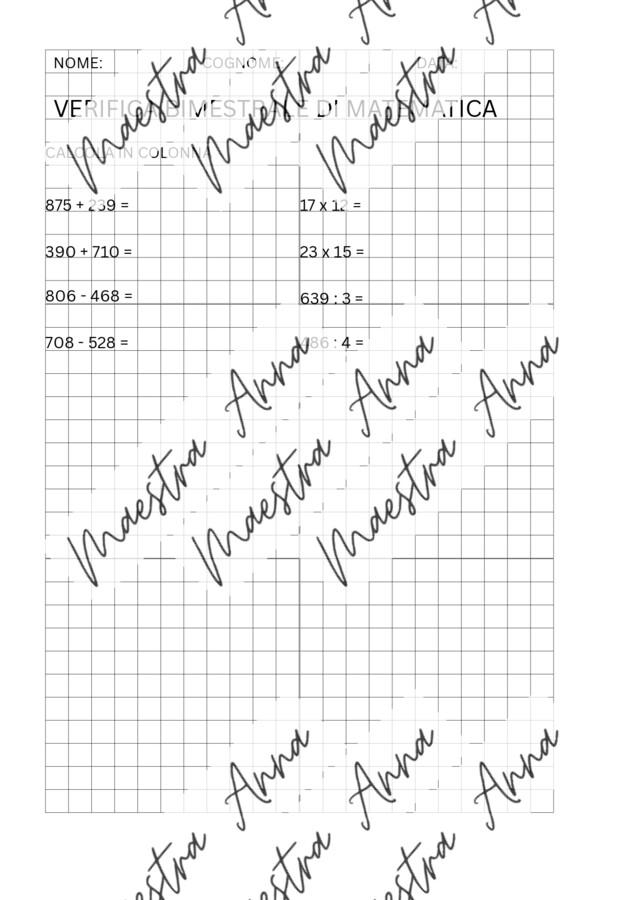 NOME: COGNOME: DATA:
VERIFICA BIMESTRALE DI MATEMATICA
CALCOLA IN COLONNA
875 + 239 = 17 x 12 =
390 + 710 = 23 x 15 =
806 - 468 = 639 : 3 =
708 - 528 = 486 : 4 =
Maestra Anna
Maestra Anna
Maestra Anna
Maestra Anna
Maestra Anna
Maestra Anna
estra Anna
estra Anna
estra Anna